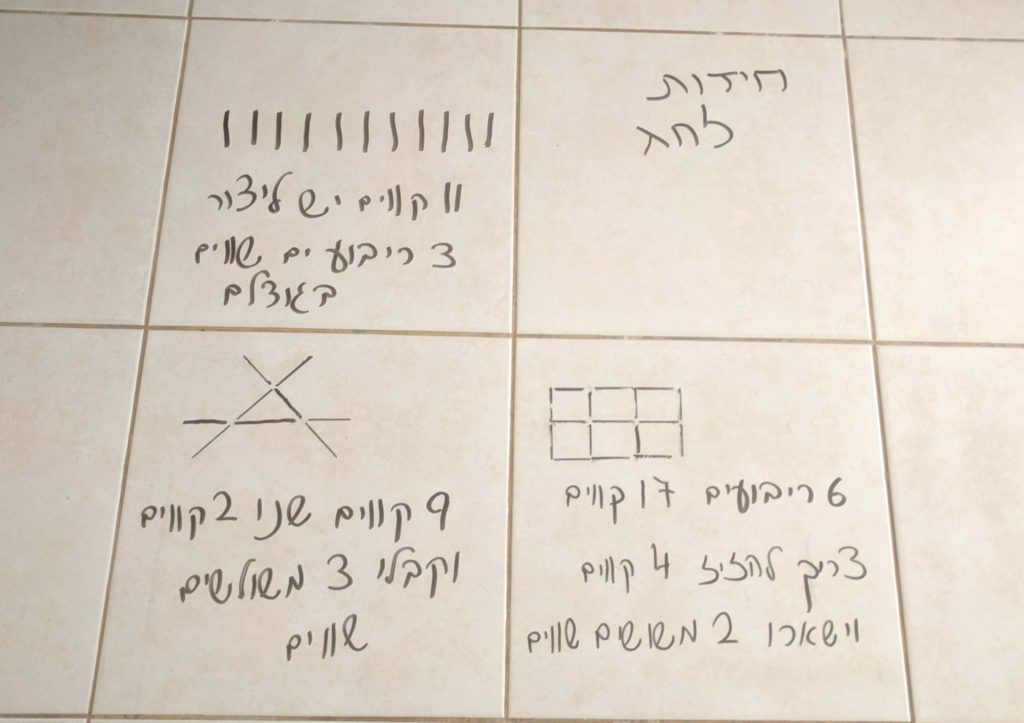 חידות
לחג
11 קווים יש ליצור
3 ריבועים שווים
בגודלם
6 ריבועים 17 קווים
צריך להזיז 4 קווים
וישארו 2 משושים שווים
9 קווים שנו 2 קווים
וקבלי 3 משולשים
שווים